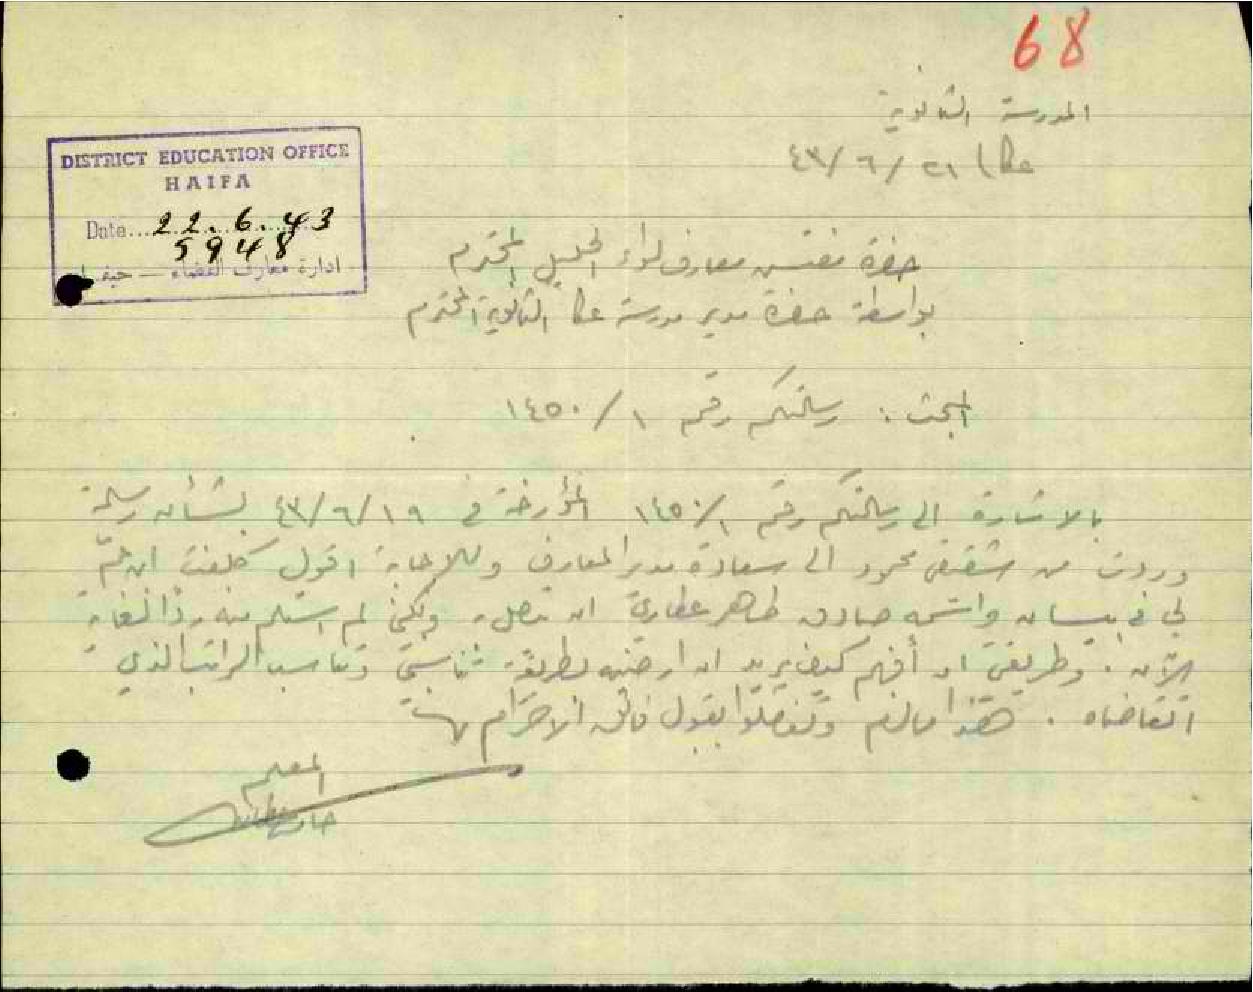 68
المدرسة الثانوية
عكا ٢١/٦/٤٣
DISTRICT EDUCATION OFFICE
HAIFA
Date... 22.6.43
5948
ادارة معارف القضاء — حيفا
حضرة مفتش معارف لواء الجليل المحترم
بواسطة حضرة مدير مدرسة عكا الثانوية المحترم
المبحث : رسالتكم رقم ١/١٤٥٠
بالاشارة الى رسالتكم رقم ١/١٤٥٠ المؤرخة في ١٩/٦/٤٣ بشأن رسالة
وردت من شقيقي محمود الى سعادة مدير المعارف وللاجابة اقول كلفت ابن عم
لي في بيسان واسمه صادق طاهر عطاري ان يتصل به ولكني لم استلم منه ردا لغاية
الآن . وطريقي ان أفهم كيف يريد ان ارضيه بطريقة تناسبني وتناسب الراتب الذي
اتقاضاه . هذا ما لزم وتفضلوا بقبول فائق الاحترام
المعلم